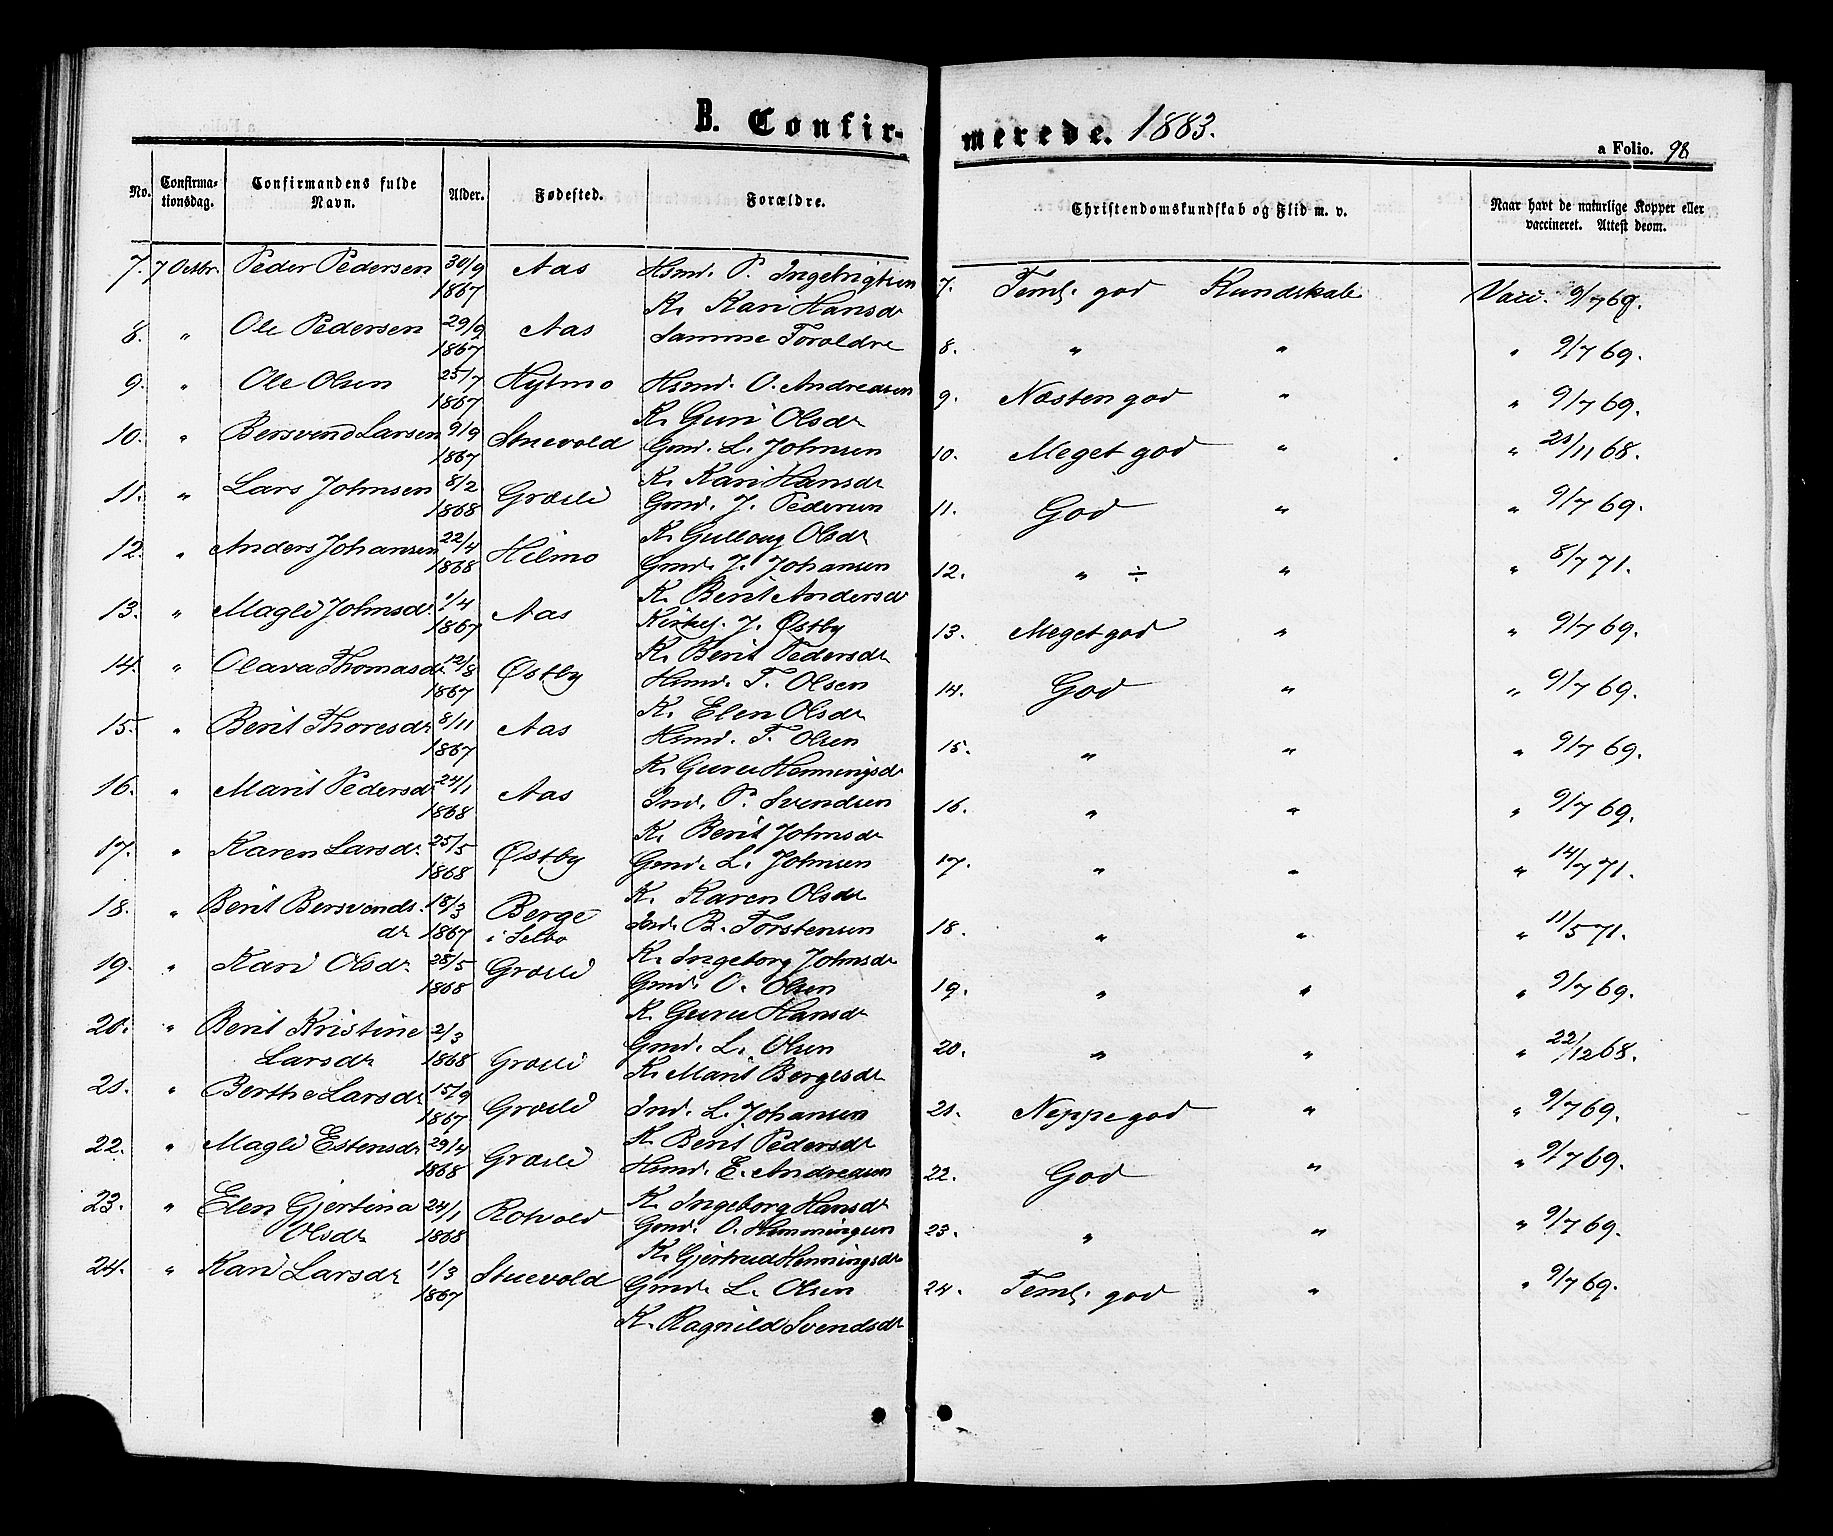 B. Confir-
No.
Confirma-
tionsdag.
Confirmandens fulde
Navn.
Alder.
Fødested.
Forældre.
7. 7 Octbr. Peder Pedersen 30/9 Aas Hsmd. P. Ingebrigtsen
1867 K. Kari Hansdr
8. " Ole Pedersen 29/9 Aas Samme Foroldre
1867
9. " Ole Olsen 25/7 Hytmo Hsmd. O. Andreasen
1867 K. Guri Olsdr
10. " Bersvend Larsen 9/9 Stuevold Gmd. L. Johnsen
1867 K. Kari Hansdr
11. " Lars Johnsen 8/2 Græsli Gmd. J. Pedersen
1868 K. Gullaug Olsdr
12. " Anders Johansen 22/4 Hilmo Gmd. J. Johansen
1868 K. Berit Andersdr
13. " Magli Johnsdr. 1/4 Aas Kirkes. J. Østby
1867 K. Berit Pedersdr
14. " Olava Thomasdr. 12/8 Østby Hsmd. T. Olsen
1867 K. Elen Olsdr
15. " Berit Thoresdr 8/11 Aas Hsmd. T. Olsen
1867 K. Guru Henningsdr
16. " Marit Pedersdr 24/1 Aas Ind. P. Svendsen
1868 K. Berit Johnsdr
17. " Karen Larsdr. 25/5 Østby Gmd. L. Johnsen
1868 K. Karen Olsdr
18. " Berit Bersvends. 18/3 Berge Ind. B. Torstensen
dr 1867 i Selbo
19. " Kari Olsdr 28/5 Græsli K. Ingeborg Johnsdr
1868 Gmd. O. Olsen
K. Guru Hansdr
20. " Berit Kristine 2/3 Gmd. L. Olsen
Larsdr 1868 Græsli K. Marit Børgesdr
21. " Berthe Larsdr 15/9 Græsli Ind. L. Johansen
1867 K. Berit Pedersdr
22. " Magli Estensdr 29/4 Græsli Hsmd. E. Andreasen
1868 K. Ingeborg Hansdr
23. " Elen Gjertina 24/1 Rotvold Gmd. O. Hemmingsen
Olsdr 1868 K. Gjertrud Henningsdr
24. " Kari Larsdr 1/3 Stuevold Gmd. L. Olsen
1867 K. Ragnild Svendsdr
merede. 1883.
a Folio. 98
Christendomskundskab og Flid m. v.
Naar havt de naturlige Kopper eller
vaccineret. Attest deom.
7. Teml. god Kundskab Vacc. 9/7 69.
8. " " " 9/7 69.
9. Næsten god " " 9/7 69.
10. Meget god " " 21/11 68.
11. God " " 9/7 69.
12. " ÷ " " 8/7 71.
13. Meget god " " 9/7 69.
14. God " " 9/7 69.
15. " " " 9/7 69.
16. " " " 9/7 69.
17. " " " 14/7 71.
18. " " " 11/5 71.
19. " " " 9/7 69.
20. " " " 22/12 68.
21. Neppe god " " 9/7 69.
22. God " " 9/7 69.
23. " " " 9/7 69.
24. Teml. god " " 9/7 69.